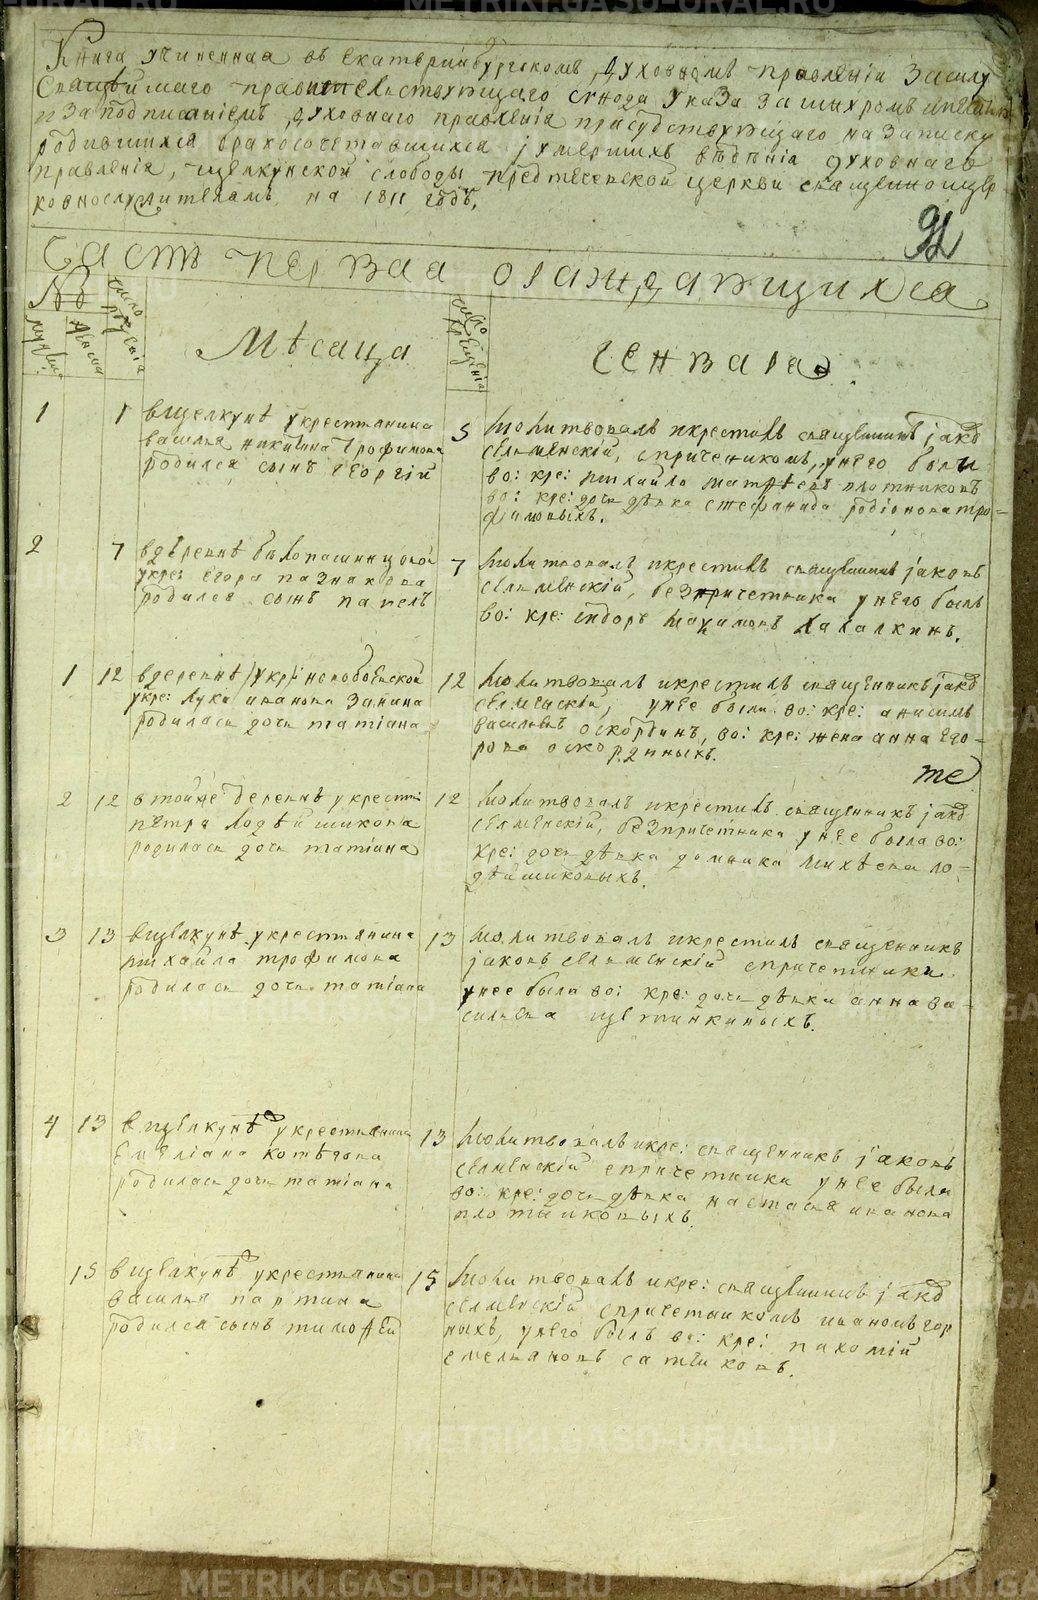 Книга учиненная въ Екатеринбургскомъ Духовномъ правленiи Засилу
Святѣйшаго правительствующаго сvнода указа За шнуромъ ипечатью
иЗа подписанiемъ духовнаго правленiя присудствующаго на записку
родившихся бракосочетавшихся iумершихъ вѣденiя духовнаго
правленiя, щелкунской слободы предтеченской церкви священноицер
ковнослужителямъ, на 1811 годъ.
92
Часть первая ораждающихся
№
мужеска
женска
число рожденiя
Мѣсяца
число крещенiя
Генваря
1
1
вщелкунѣ укрестьянина
василья никитина трофимова
родился сынъ Георгiй
5
молитвовалъ икрестилъ священникъ iаковъ
селменскiй, спричетникомъ, унего были
во: кре: михайло матвѣевъ плотниковъ
во: кре: дочь дѣвка стефанида родiонова тро=
фимовыхъ.
2
7
вдеревнѣ бѣлопашинцовой
укре: Егора пазнакова
родился сынъ павелъ
7
молитвовалъ икрестилъ священникъ iаковъ
селменскiй, безпричетника унего былъ
во: кре: сидоръ
1
12
вдеревнѣ
укре: луки иванова Занина
родилась дочь татiана
12
молитвовалъ икрестилъ священникъ iаковъ
селменскiй, унее были во: кре: анисимъ
васильевъ оскординъ, во: кре: жена анна его=
рова оскординыхъ.
те
2
12
втойже деревнѣ укрестья
петра лодѣйщикова
родилась дочь татiана
12
молитвовалъ икрестилъ священникъ iаковъ
селменскiй, безпричетника унее была во:
кре: дочь дѣвка домника михѣева ло=
дѣйщиковыхъ.
3
13
вщелкунѣ укрестьянина
михайла трофимова
родилась дочь татiана
13
молитвовалъ икрестилъ священникъ
iаковъ селменскiй спричетники
унее была во: кре: дочь дѣвка анна ва=
сильева
4
13
вщелкунѣ укрестьянина
Емелiана котѣгова
родилась дочь татiана
13
молитвовалъ икре: священникъ iаковъ
селменскiй спричетники унее была
во: кре: дочь дѣвка настасья иванова
плотниковыхъ.
15
вщелкунѣ укрестьянина
василья партина
родился сынъ тимофей
15
молитвовалъ икре: священникъ iаковъ
селменскiй спричетникомъ иваномъ гор
ныхъ, унего былъ во: кре: пахомiй
емельяновъ сатиковъ.
METRIKI.GASO-URAL.RU